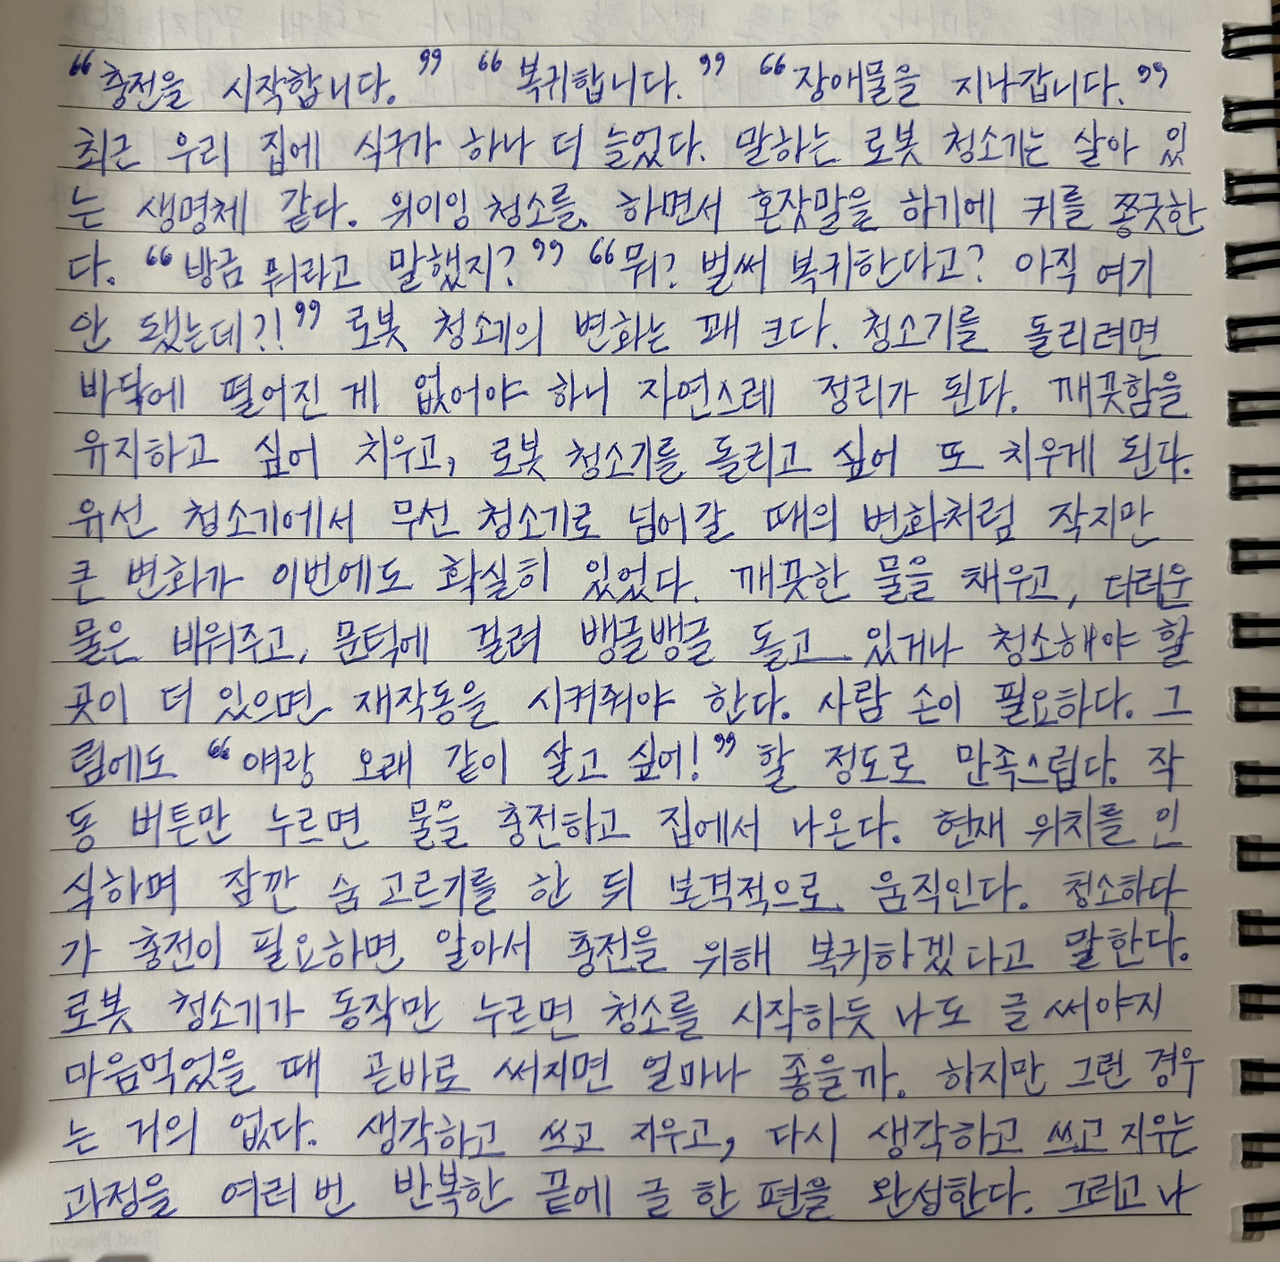 “충전을 시작합니다.” “복귀합니다.” “장애물을 지나갑니다.”
최근 우리 집에 식구가 하나 더 늘었다. 말하는 로봇 청소기는 살아 있
는 생명체 같다. 위이잉 청소를 하면서 혼잣말을 하기에 귀를 쫑긋한
다. “방금 뭐라고 말했지?” “뭐? 벌써 복귀한다고? 아직 여기
안 됐는데?!” 로봇 청소기의 변화는 꽤 크다. 청소기를 돌리려면
바닥에 떨어진 게 없어야 하니 자연스레 정리가 된다. 깨끗함을
유지하고 싶어 치우고, 로봇 청소기를 돌리고 싶어 또 치우게 된다.
유선 청소기에서 무선 청소기로 넘어갈 때의 변화처럼 작지만
큰 변화가 이번에도 확실히 있었다. 깨끗한 물을 채우고, 더러운
물은 비워주고, 문턱에 걸려 뱅글뱅글 돌고 있거나 청소해야 할
곳이 더 있으면 재작동을 시켜줘야 한다. 사람 손이 필요하다. 그
럼에도 “얘랑 오래 같이 살고 싶어!” 할 정도로 만족스럽다. 작
동 버튼만 누르면 물을 충전하고 집에서 나온다. 현재 위치를 인
식하며 잠깐 숨 고르기를 한 뒤 본격적으로 움직인다. 청소하다
가 충전이 필요하면 알아서 충전을 위해 복귀하겠다고 말한다.
로봇 청소기가 동작만 누르면 청소를 시작하듯 나도 글 써야지
마음먹었을 때 곧바로 써지면 얼마나 좋을까. 하지만 그런 경우
는 거의 없다. 생각하고 쓰고 지우고, 다시 생각하고 쓰고 지우는
과정을 여러 번 반복한 끝에 글 한 편을 완성한다. 그리고 나